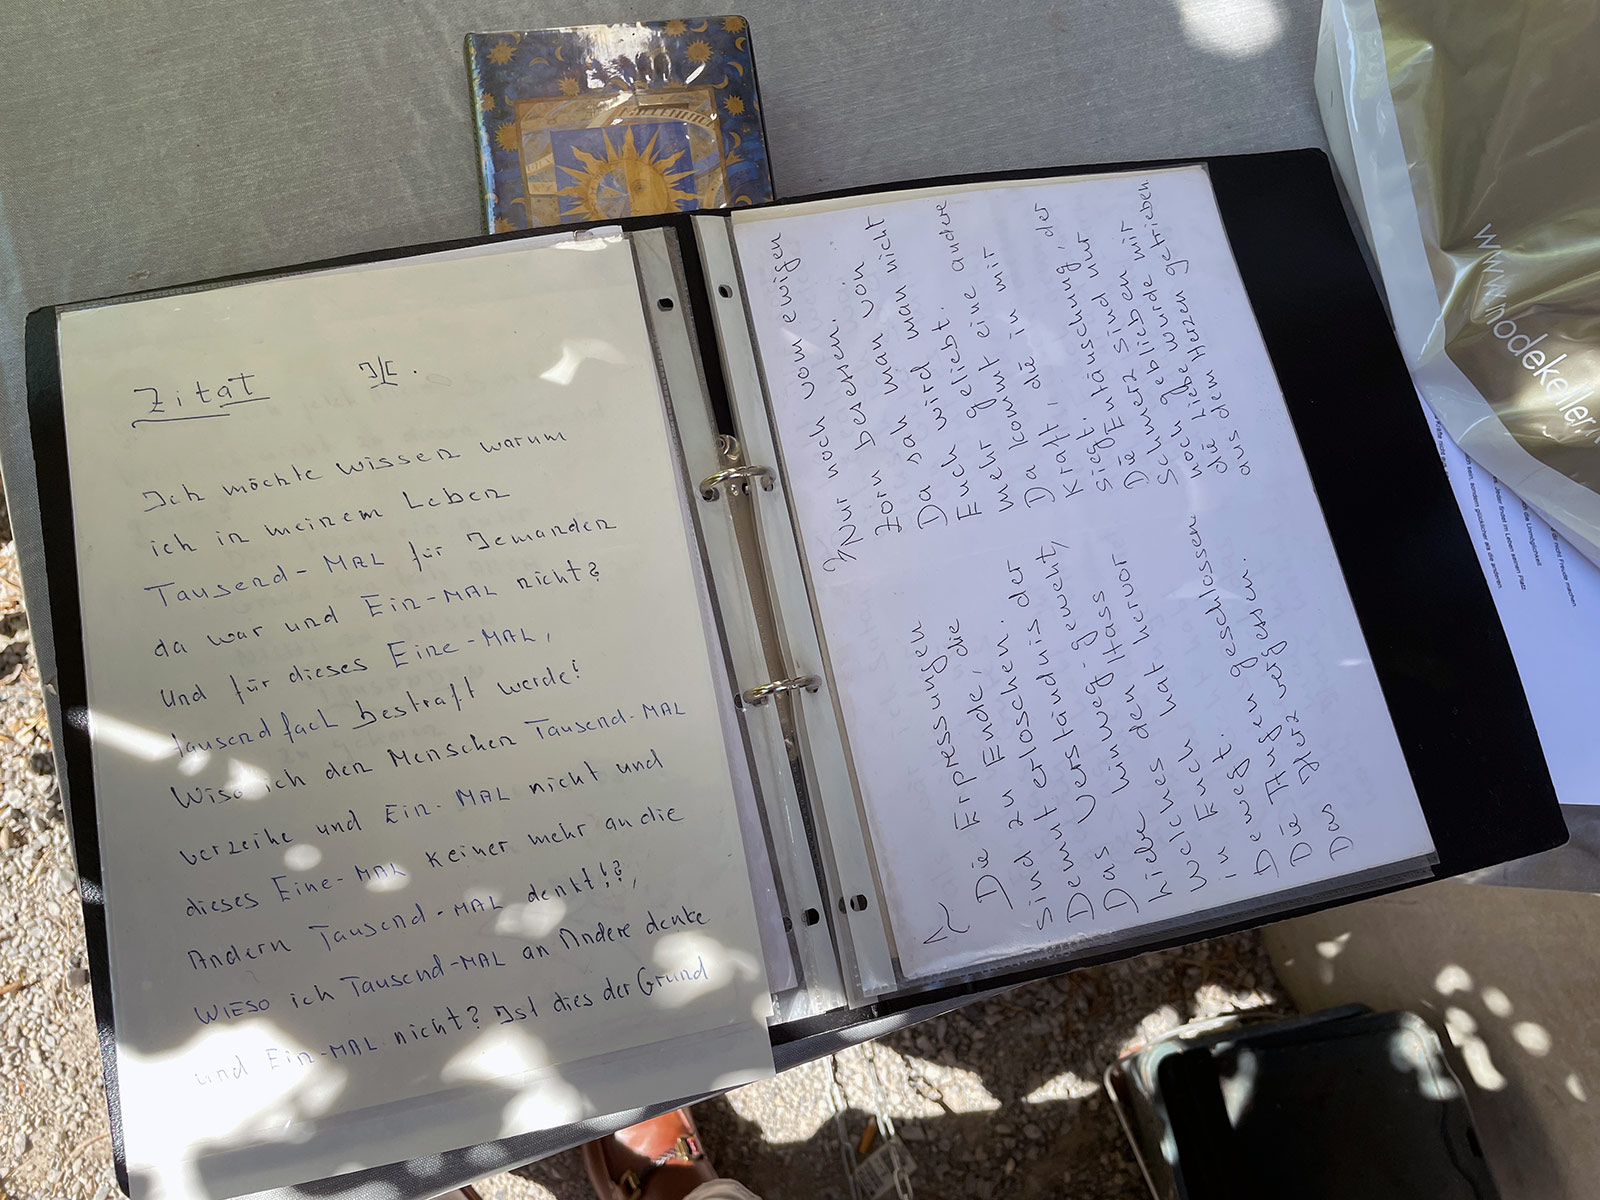 Zitat II.
Ich möchte wissen warum
ich in meinem Leben
Tausend-MAL für Jemanden
da war und Ein-MAL nicht?
und für dieses Eine-MAL,
tausendfach bestraft werde!
Wiso ich den Menschen Tausend-MAL
verzeihe und Ein-MAL nicht und
dieses Eine-MAL keiner mehr an die
Andern Tausend-MAL denkt!?,
WIESO ich Tausend-MAL an Andere denke
und Ein-MAL nicht? Ist dies der Grund
Die Erpressungen
sind zu Ende, die
Demut erloschen.
Das Verständnis der
Das hinweg-geweht,
Liebe den Hass
welches hat hervor
in Euch geschlossen
Deswegen gesehen.
Die Augen
Das Herz vergessen.
Nur noch vom ewigen
Zorn besessen.
Da sah man von
Euch wird man nicht
mehr geliebt.
Da kommt eine andere
Kraft, die in mir
siegt.
Die Enttäuschung, der
Schmerz sind nur
noch geblieben mit
die Liebe wurde mir
aus dem Herzen getrieben.
www.modekeller